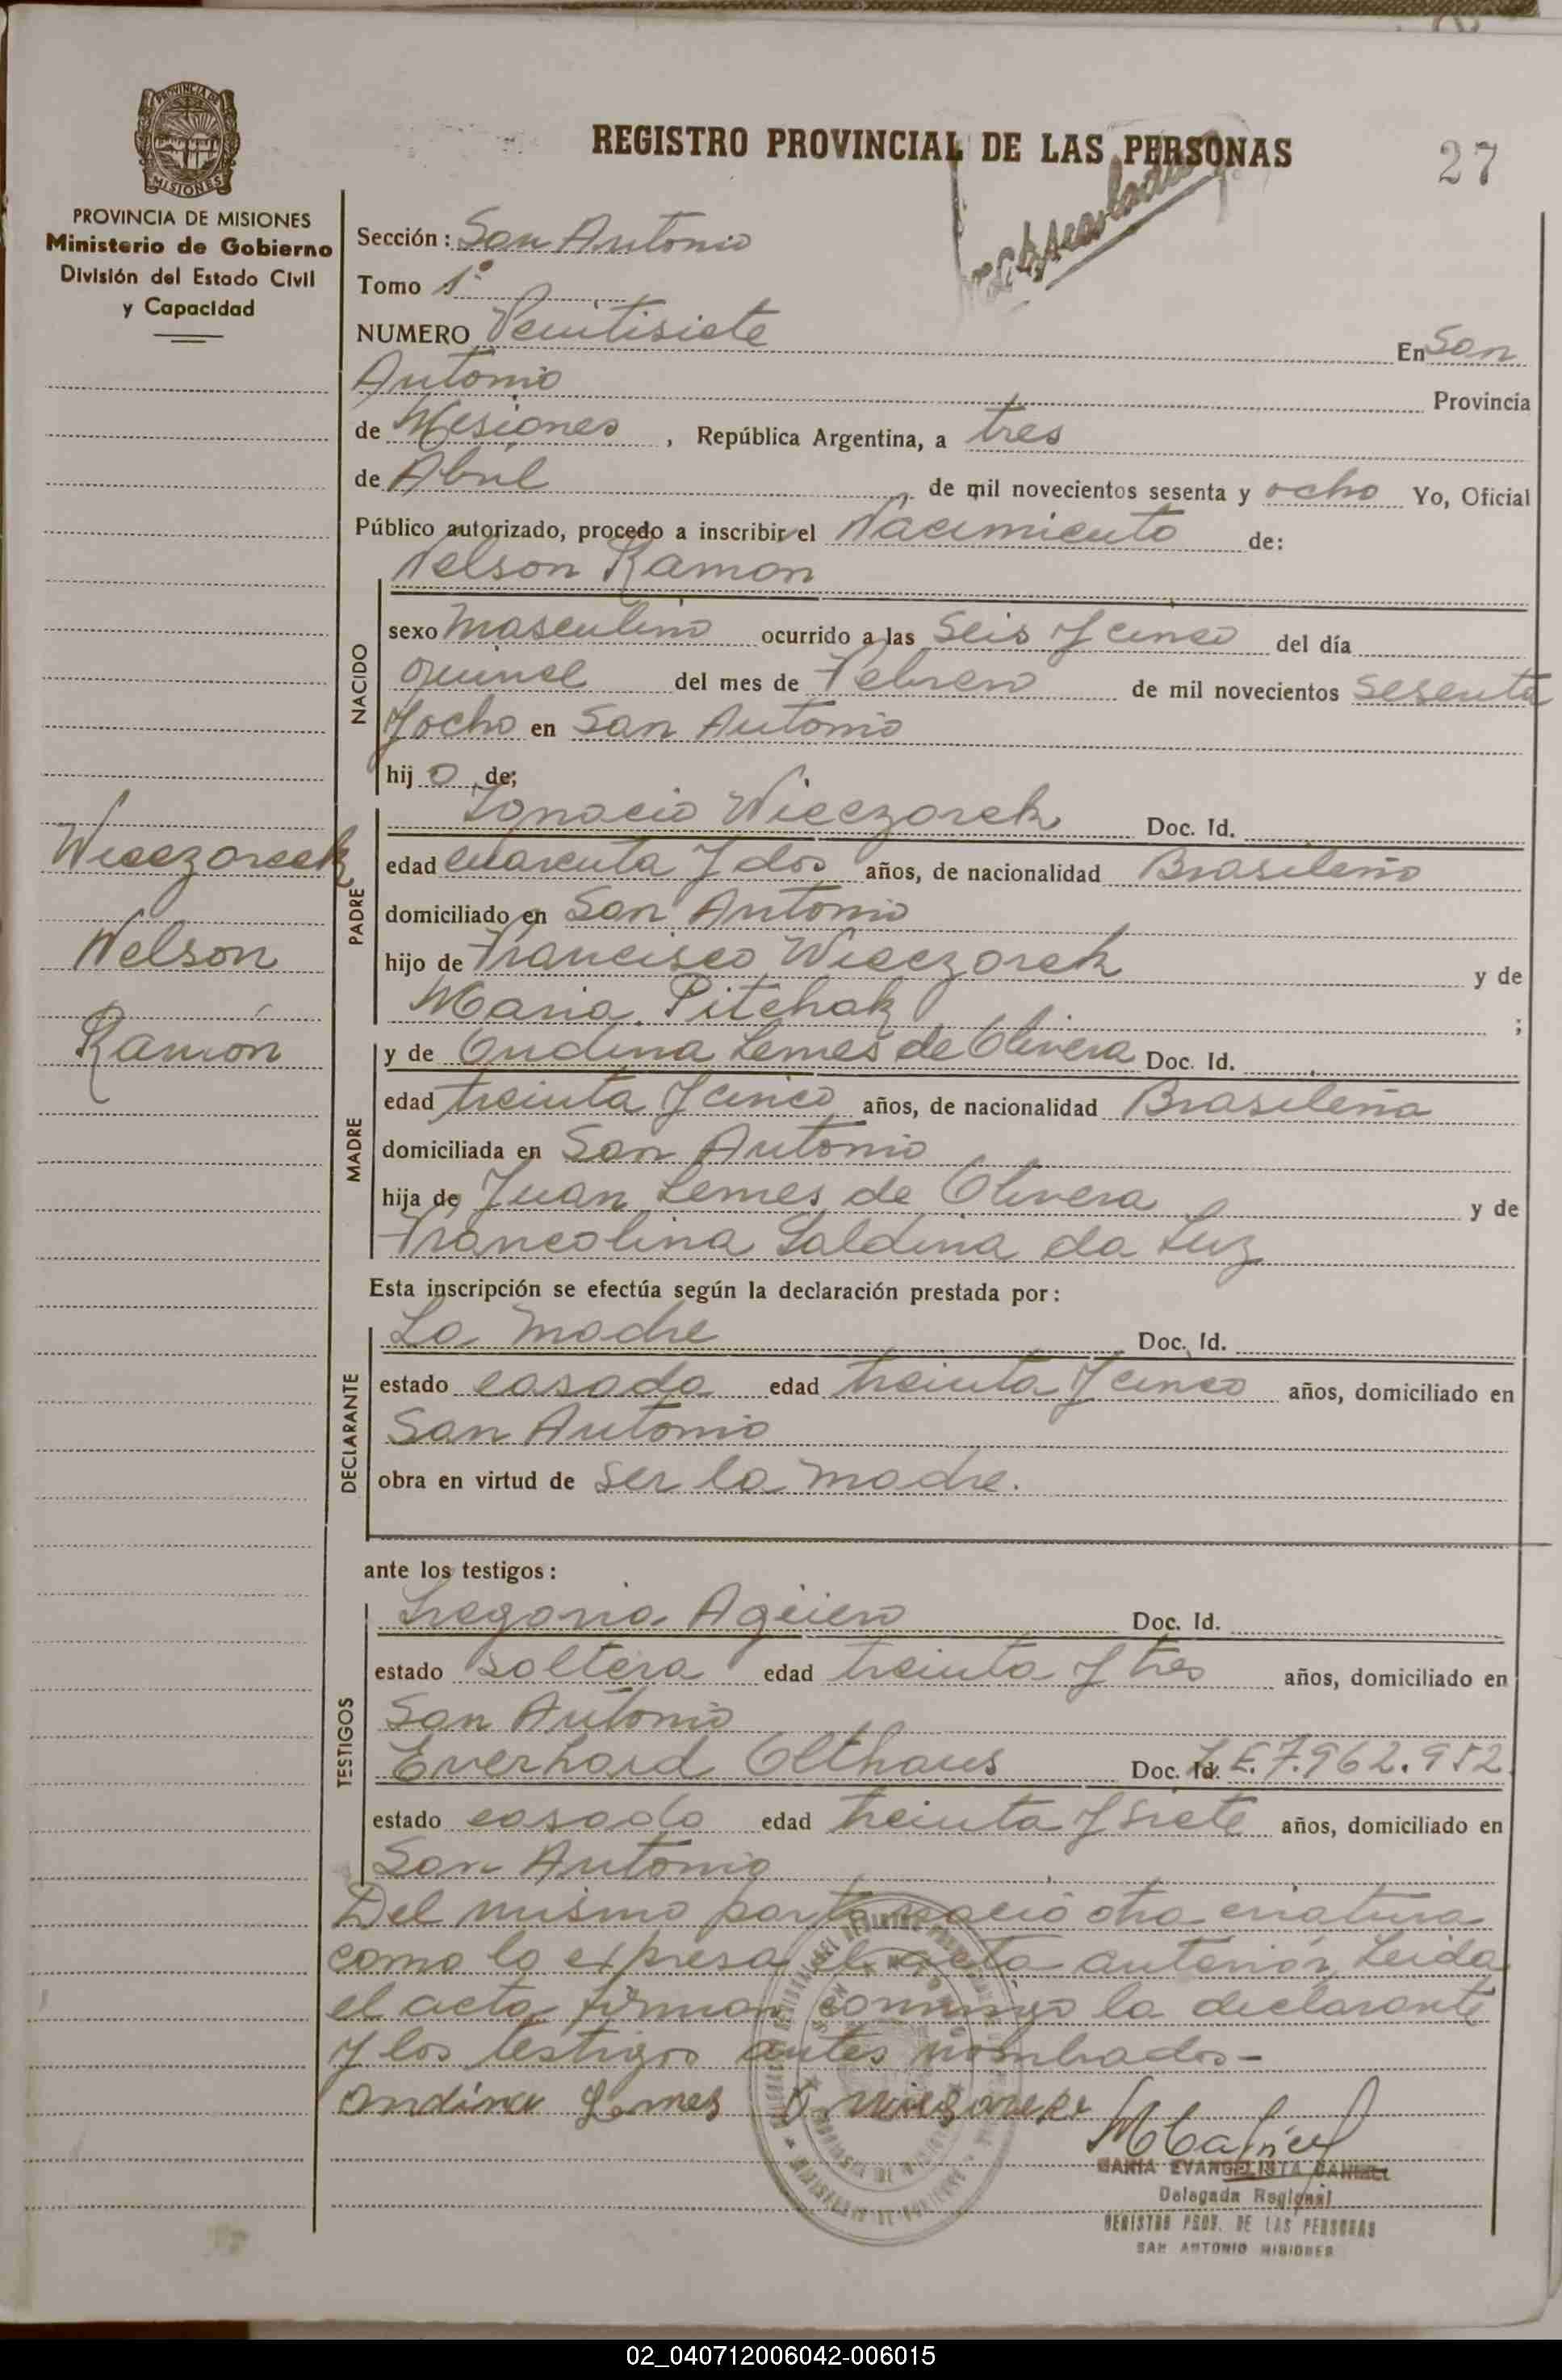 REGISTRO PROVINCIAL DE LAS PERSONAS
27
PROVINCIA DE MISIONES
Ministerio de Gobierno
División del Estado Civil
y Capacidad
Sección: San Antonio
Tomo 1º
NUMERO Veintisiete En San
Antonio Provincia
de Misiones, República Argentina, a tres
de Abril de mil novecientos sesenta y ocho Yo, Oficial
Público autorizado, procedo a inscribir el Nacimiento de:
Nelson Ramon
NACIDO
sexo Masculino ocurrido a las Seis y cinco del día
quince del mes de Febrero de mil novecientos Sesenta
y ocho en San Antonio
hijo de;
Ignacio Wieczorek Doc. Id.
Wieczoreck
Nelson
Ramón
PADRE
edad cuarenta y dos años, de nacionalidad Brasileño
domiciliado en San Antonio
hijo de Francisco Wieczorek y de
Maria Pitchak ;
y de Ondina Lemes de Olivera Doc. Id.
MADRE
edad treinta y cinco años, de nacionalidad Brasileña
domiciliada en San Antonio
hija de Juan Lemes de Olivera y de
Francolina Saldina da Luz
Esta inscripción se efectúa según la declaración prestada por:
La Madre Doc. Id.
DECLARANTE
estado casada edad treinta y cinco años, domiciliado en
San Antonio
obra en virtud de ser la madre.
ante los testigos:
Gregoria Agüero Doc. Id.
TESTIGOS
estado soltera edad treinta y tres años, domiciliado en
San Antonio
Everhard Olthaus Doc. Id. L.E. 7.962.952
estado casado edad treinta y siete años, domiciliado en
San Antonio
Del mismo parto nació otra criatura
como lo expresa el acta anterior, Leida
el acta firman conmigo la declarante
y los testigos antes nombrados-
Ondina Lemes D
MARIA EVANGELISTA
Delegada Regional
REGISTRO PROV. DE LAS PERSONAS
SAN ANTONIO MISIONES
02_040712006042-006015